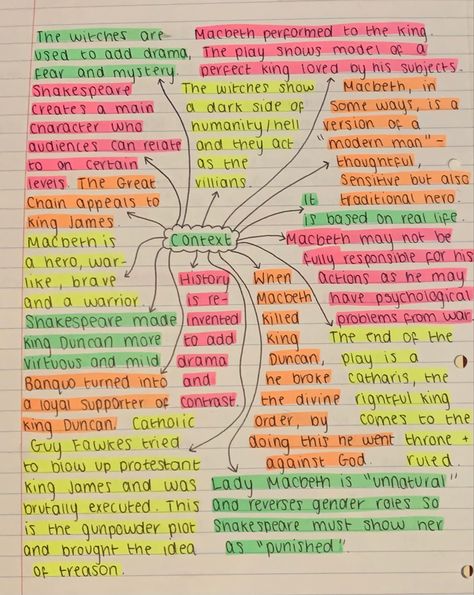 The witches are
used to add drama,
fear and mystery.
Macbeth performed to the King.
The play shows model of a
perfect king loved by his subjects.
Shakespeare
creates a main
character who
audiences can relate
to on certain
levels. The Great
Chain appeals to
King James.
The witches show
a dark side of
humanity/hell
and they act
as the
villians.
Macbeth, in
some ways, is a
version of a
"modern man" -
thoughtful,
sensitive but also
traditional hero.
It
is based on real life.
Context
Macbeth is
a hero, war-
like, brave
and a warrior.
Macbeth may not be
fully responsible for his
actions as he may
have psychological
problems from war.
Shakespeare made
King Duncan more
virtuous and mild
History
is re-
invented
to add
drama
and
contrast.
When
Macbeth
killed
King
Duncan,
he broke
the divine
order, by
doing this he went
against God.
The end of the
play is a
catharis, the
rightful king
comes to the
throne +
ruled.
Banquo turned into
a loyal supporter of
King Duncan.
Catholic
Guy Fawkes tried
to blow up protestant
King James and was
brutally executed. This
is the gunpowder plot
and brought the idea
of treason.
Lady Macbeth is "unnatural"
and reverses gender roles so
Shakespeare must show her
as "punished".